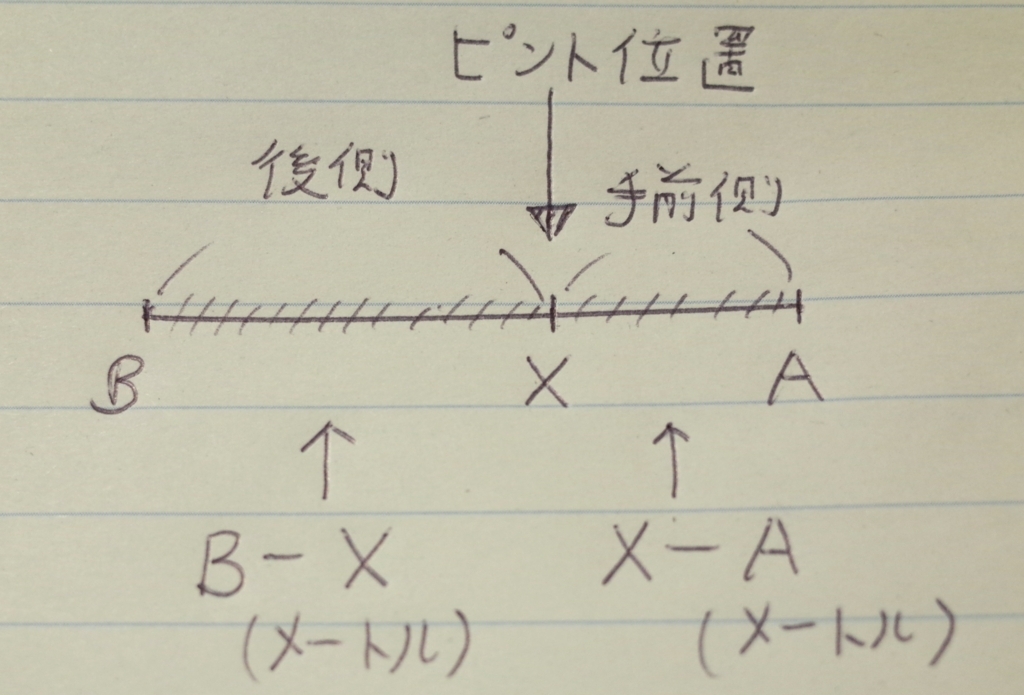 ピント位置
後側
手前側
B X A
↑ ↑
B－X X－A
(メートル) (メートル)